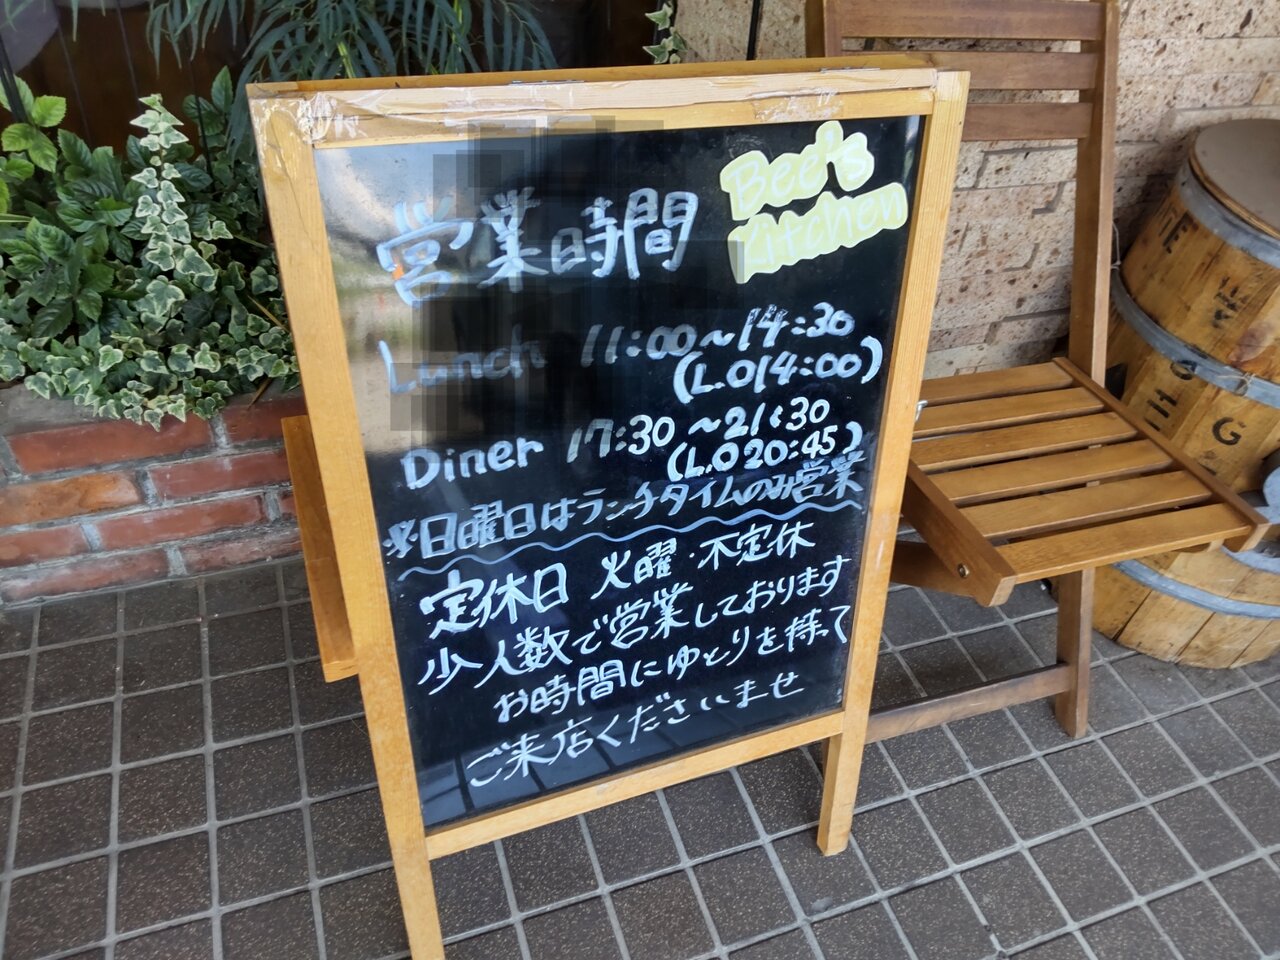 Bee's
Kitchen
営業時間
Lunch 11:00～14:30
(L.O14:00)
Diner 17:30～21:30
(L.O 20:45)
※日曜日はランチタイムのみ営業
定休日 火曜・不定休
少人数で営業しております
お時間にゆとりを持って
ご来店くださいませ
G